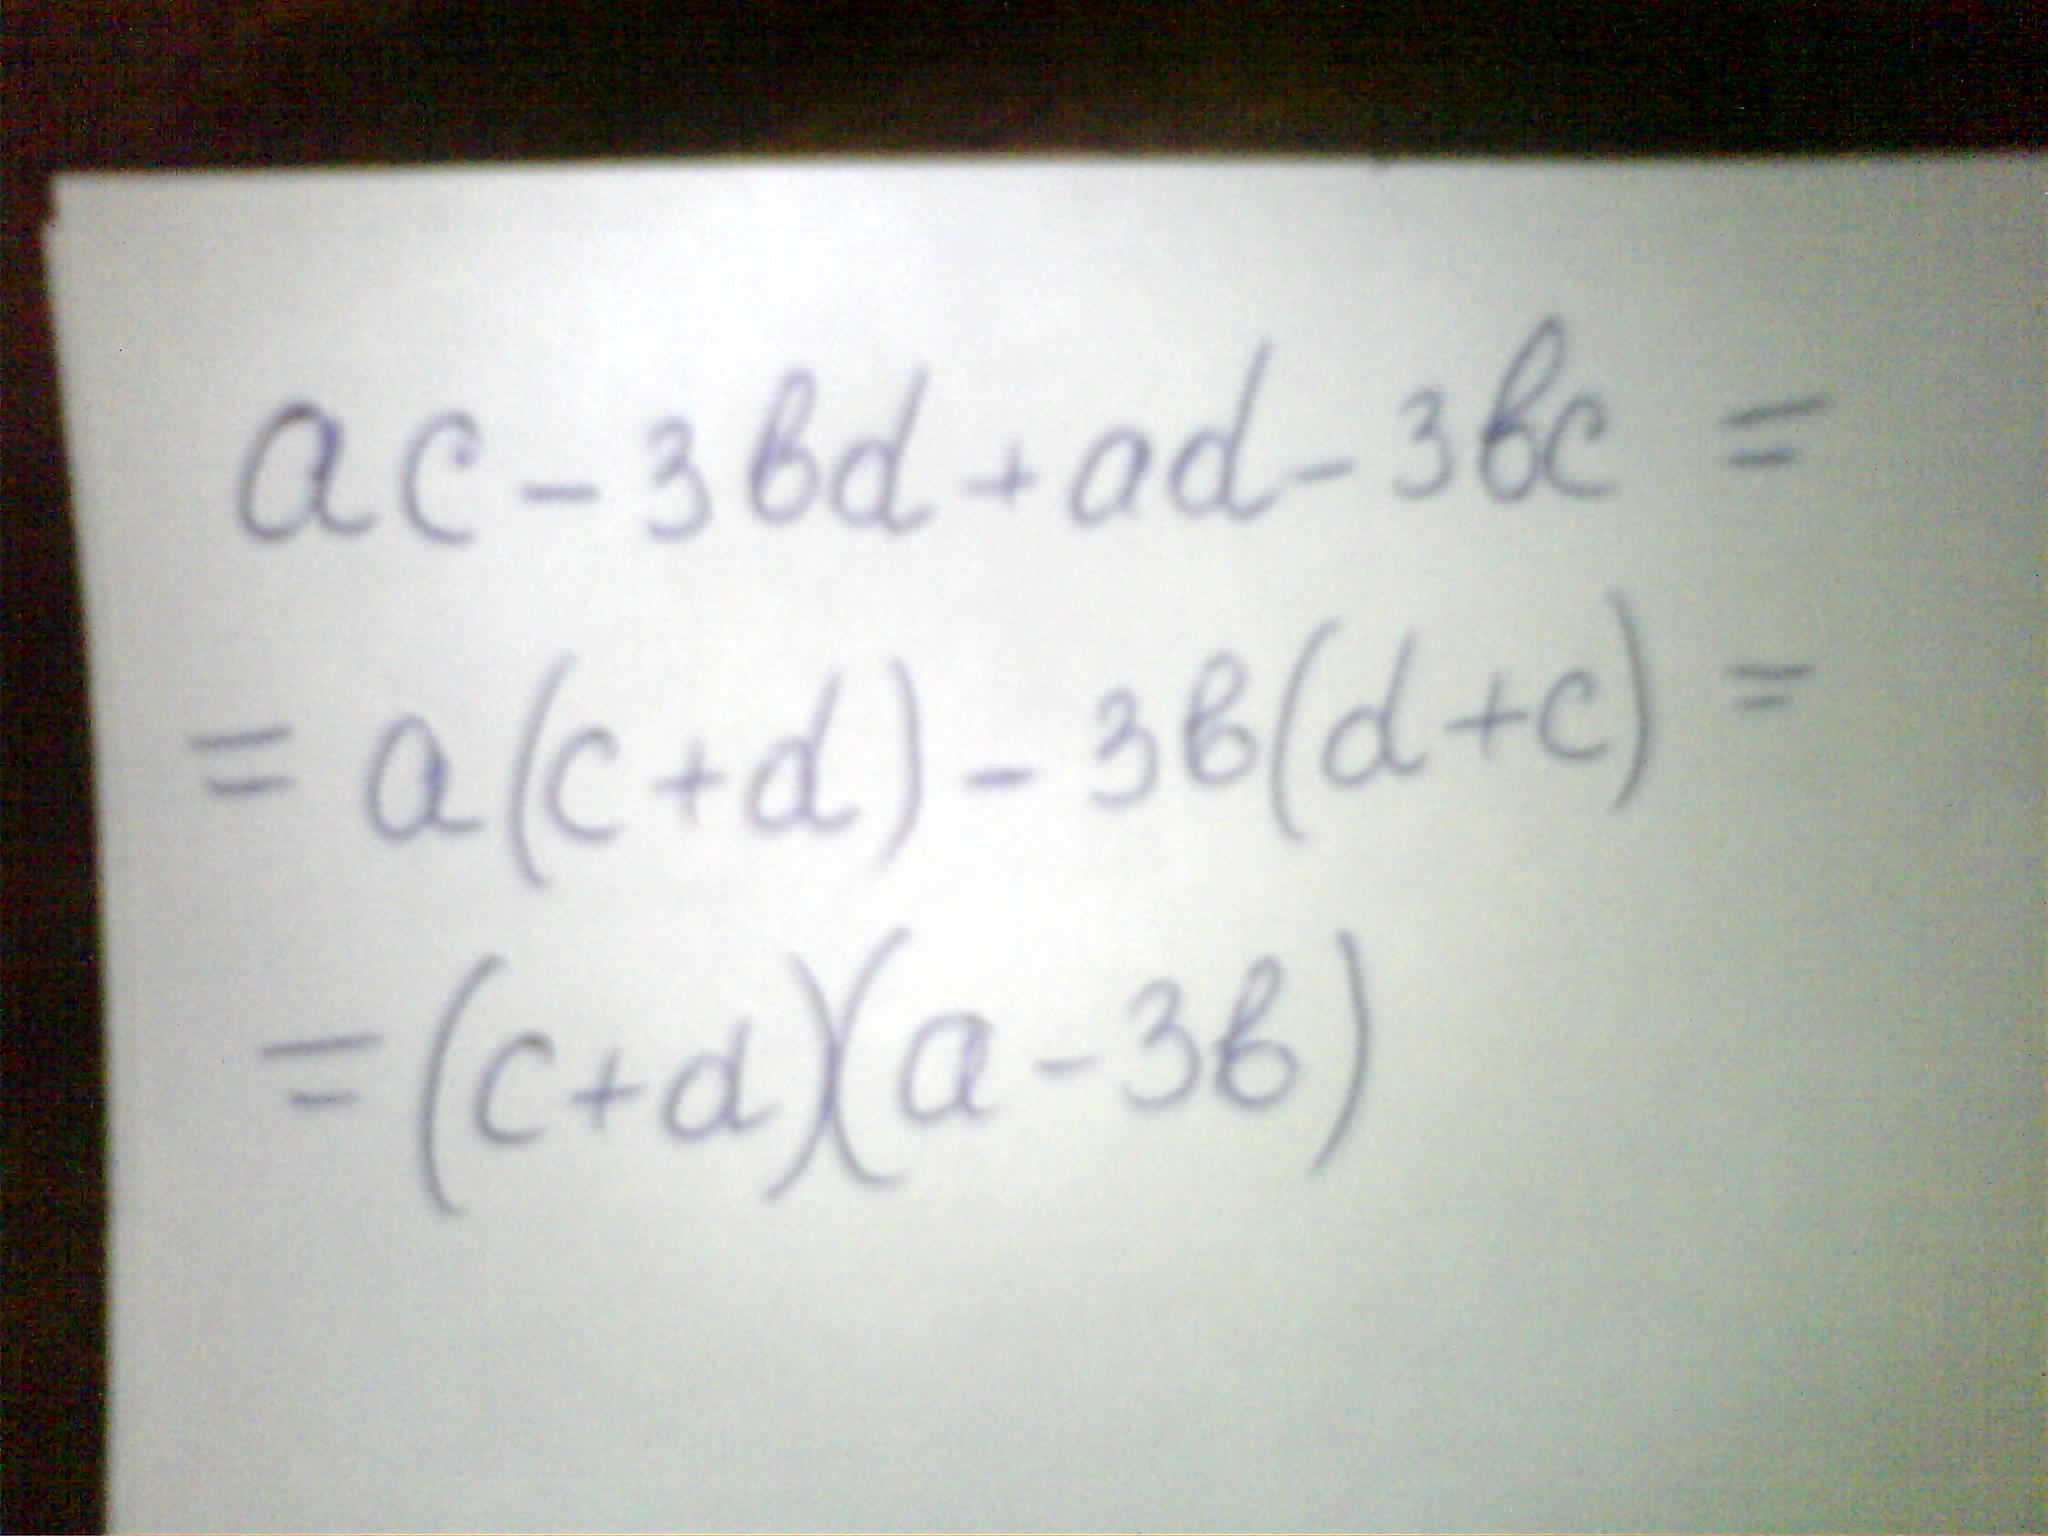 ac - 3bd + ad - 3bc =
= a(c+d) - 3b(d+c) =
= (c+d)(a - 3b)